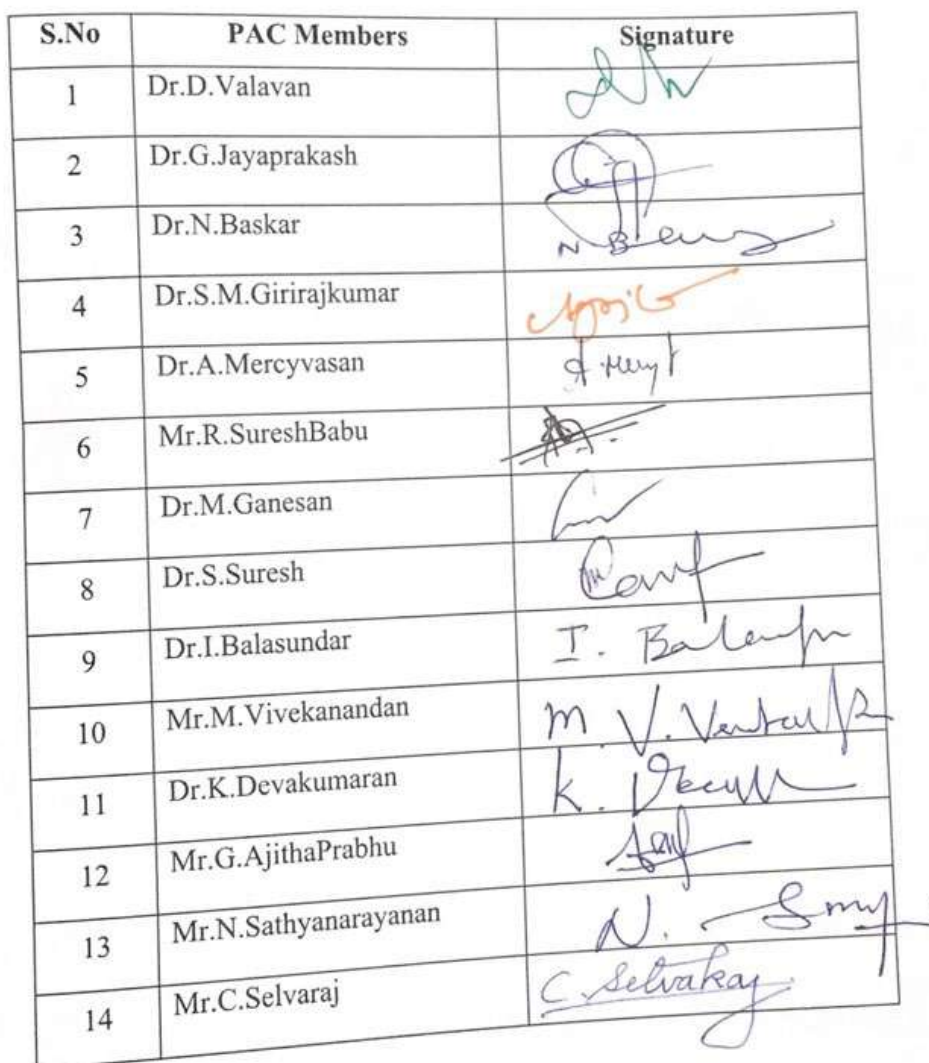 S.No PAC Members Signature
1 Dr.D.Valavan
2 Dr.G.Jayaprakash
3 Dr.N.Baskar N B
4 Dr.S.M.Girirajkumar
5 Dr.A.Mercyvasan
6 Mr.R.SureshBabu
7 Dr.M.Ganesan
8 Dr.S.Suresh
9 Dr.I.Balasundar I.
10 Mr.M.Vivekanandan M. V.
11 Dr.K.Devakumaran K.
12 Mr.G.AjithaPrabhu
13 Mr.N.Sathyanarayanan N.
14 Mr.C.Selvaraj C. Selvaraj